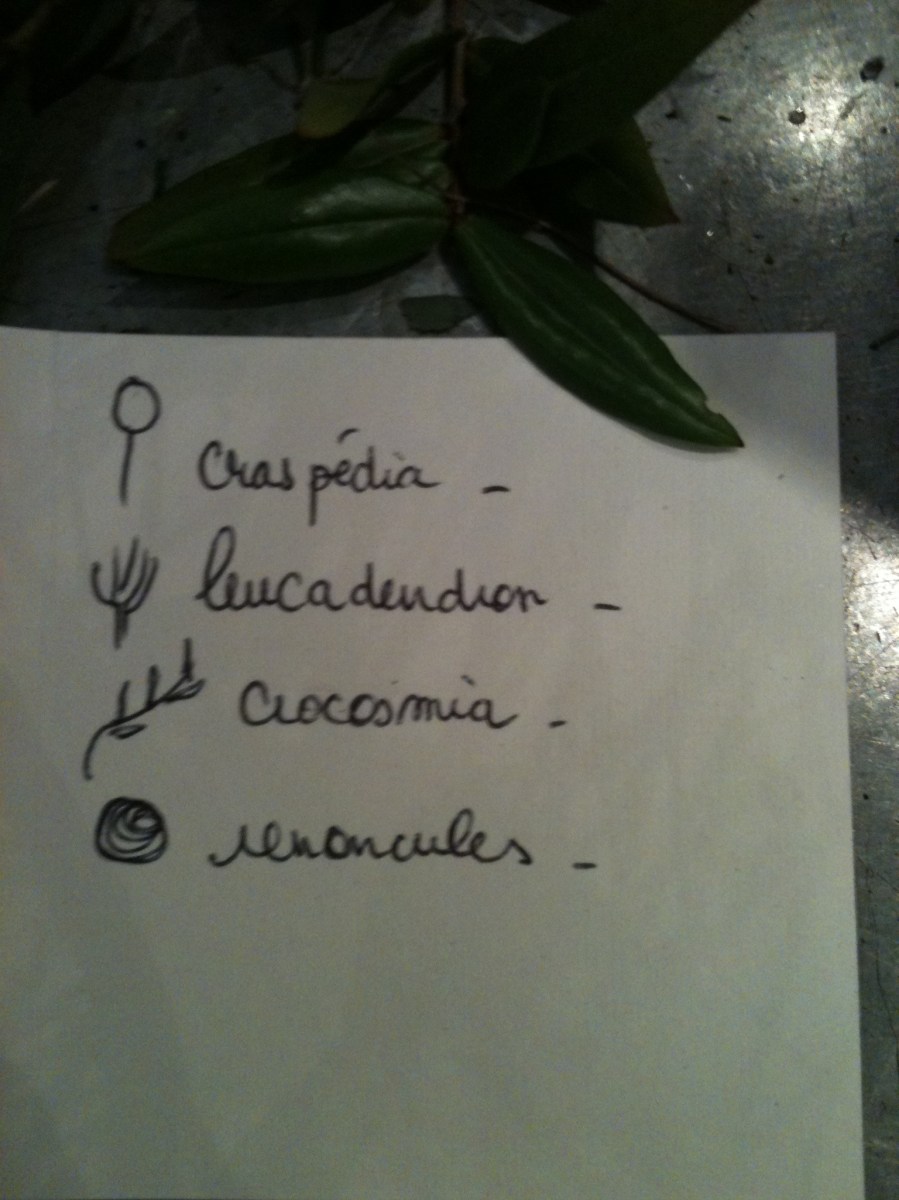 Craspédia -
leucadendron -
Crocosmia -
renoncules -